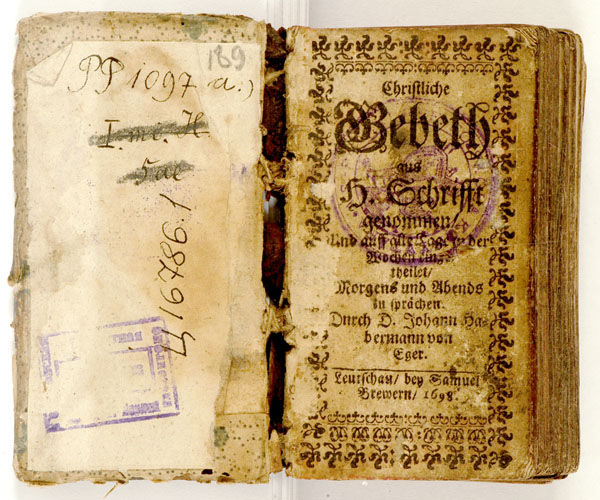 189
PP 1097 a.)
I. mc. H
5ae
Lj 16786.1
Christliche
Gebeth
aus
H. Schrifft
genommen/
Und auff alle Tage in der
Wochen
theilet/
Morgens und Abends
zu sprächen.
Durch D. Johann Ha-
bermann von
Eger.
Leutschau/ bey Samuel
Brewern/ 1698